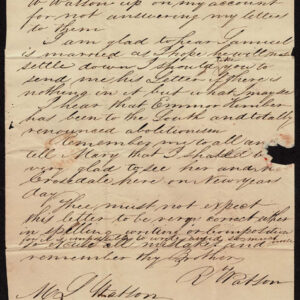 to Watson up on my account
for not answering my letters
to them
I am glad to hear Samuel
is married as I hope he will now
settle down I should like you to
send me his Letter if there is
nothing in it but what may see
I hear that Emmor Kimber
has been to the South and totally
renounced abolitionism
Remember me to all and
tell Mary that I shall be
very glad to see her and
Croesdale here on New Years
day
Thee must not expect
this letter to be very correct either
in spelling writing or composition
for it is impossible to write amid so much
and
remember thy Brother
R Watson
M L Watson